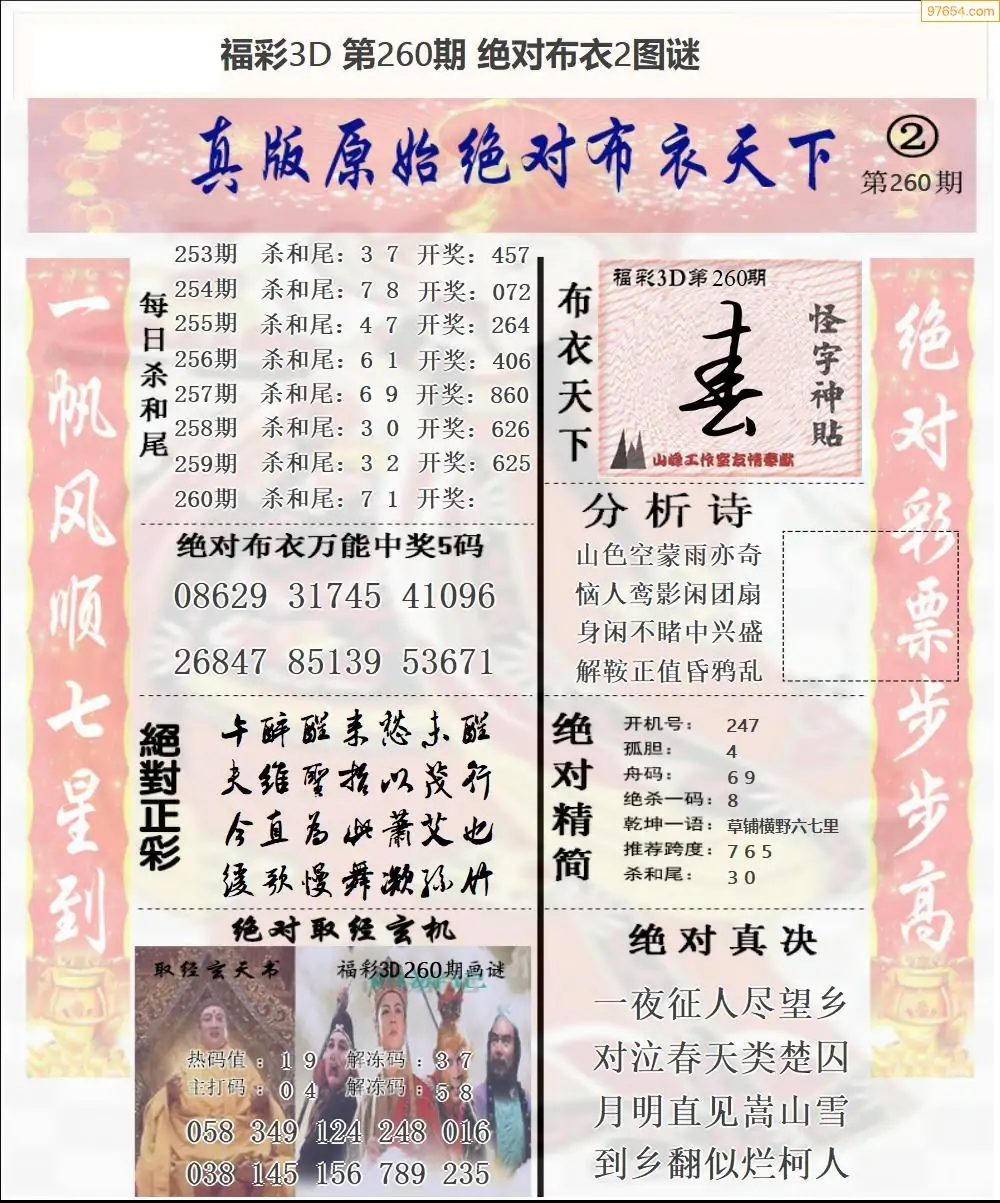 97654.com
福彩3D 第260期 绝对布衣2图谜
真版原始绝对布衣天下
②
第260期
一帆风顺七星到
每日杀和尾
253期 杀和尾：3 7 开奖：457
254期 杀和尾：7 8 开奖：072
255期 杀和尾：4 7 开奖：264
256期 杀和尾：6 1 开奖：406
257期 杀和尾：6 9 开奖：860
258期 杀和尾：3 0 开奖：626
259期 杀和尾：3 2 开奖：625
260期 杀和尾：7 1 开奖：
绝对布衣万能中奖5码
08629 31745 41096
26847 85139 53671
絕對正彩
午醉醒来愁未醒
夫维聖哲以茂行
今直為此蕭艾也
缓歌慢舞凝丝竹
绝对取经玄机
取经玄天书
福彩3D260期画谜
热码值：1 9 解冻码：3 7
主打码：0 4 解冻码：5 8
058 349 124 248 016
038 145 156 789 235
布衣天下
福彩3D第260期
怪字神貼
山峰工作室友情奉献
分析诗
山色空蒙雨亦奇
恼人鸾影闲团扇
身闲不睹中兴盛
解鞍正值昏鸦乱
绝对精简
开机号：247
孤胆：4
舟码：6 9
绝杀一码：8
乾坤一语：草铺横野六七里
推荐跨度：7 6 5
杀和尾：3 0
绝对真决
一夜征人尽望乡
对泣春天类楚囚
月明直见嵩山雪
到乡翻似烂柯人
绝对彩票步步高